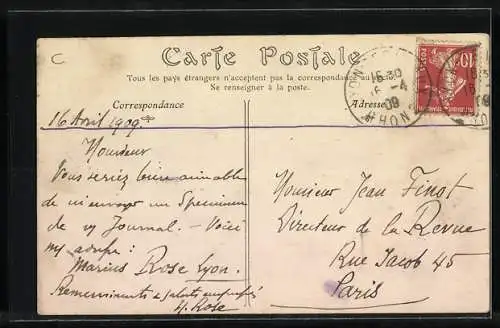 C
Carte Postale
Tous les pays étrangers n'acceptent pas la correspondance au
Se renseigner à la poste.
Correspondance
Adresse
16 30
16 -4
09
RHONE
10
16 Avril 1909.
Monsieur
Vous seriez bien aimable
de m'envoyer un Specimen
de vo Journal. — Voici
my adresse :
Marius Rose Lyon.
Remerciments & saluts empressés
M. Rose
Monsieur Jean Finot
Directeur de la Revue
Rue Jacob 45
Paris